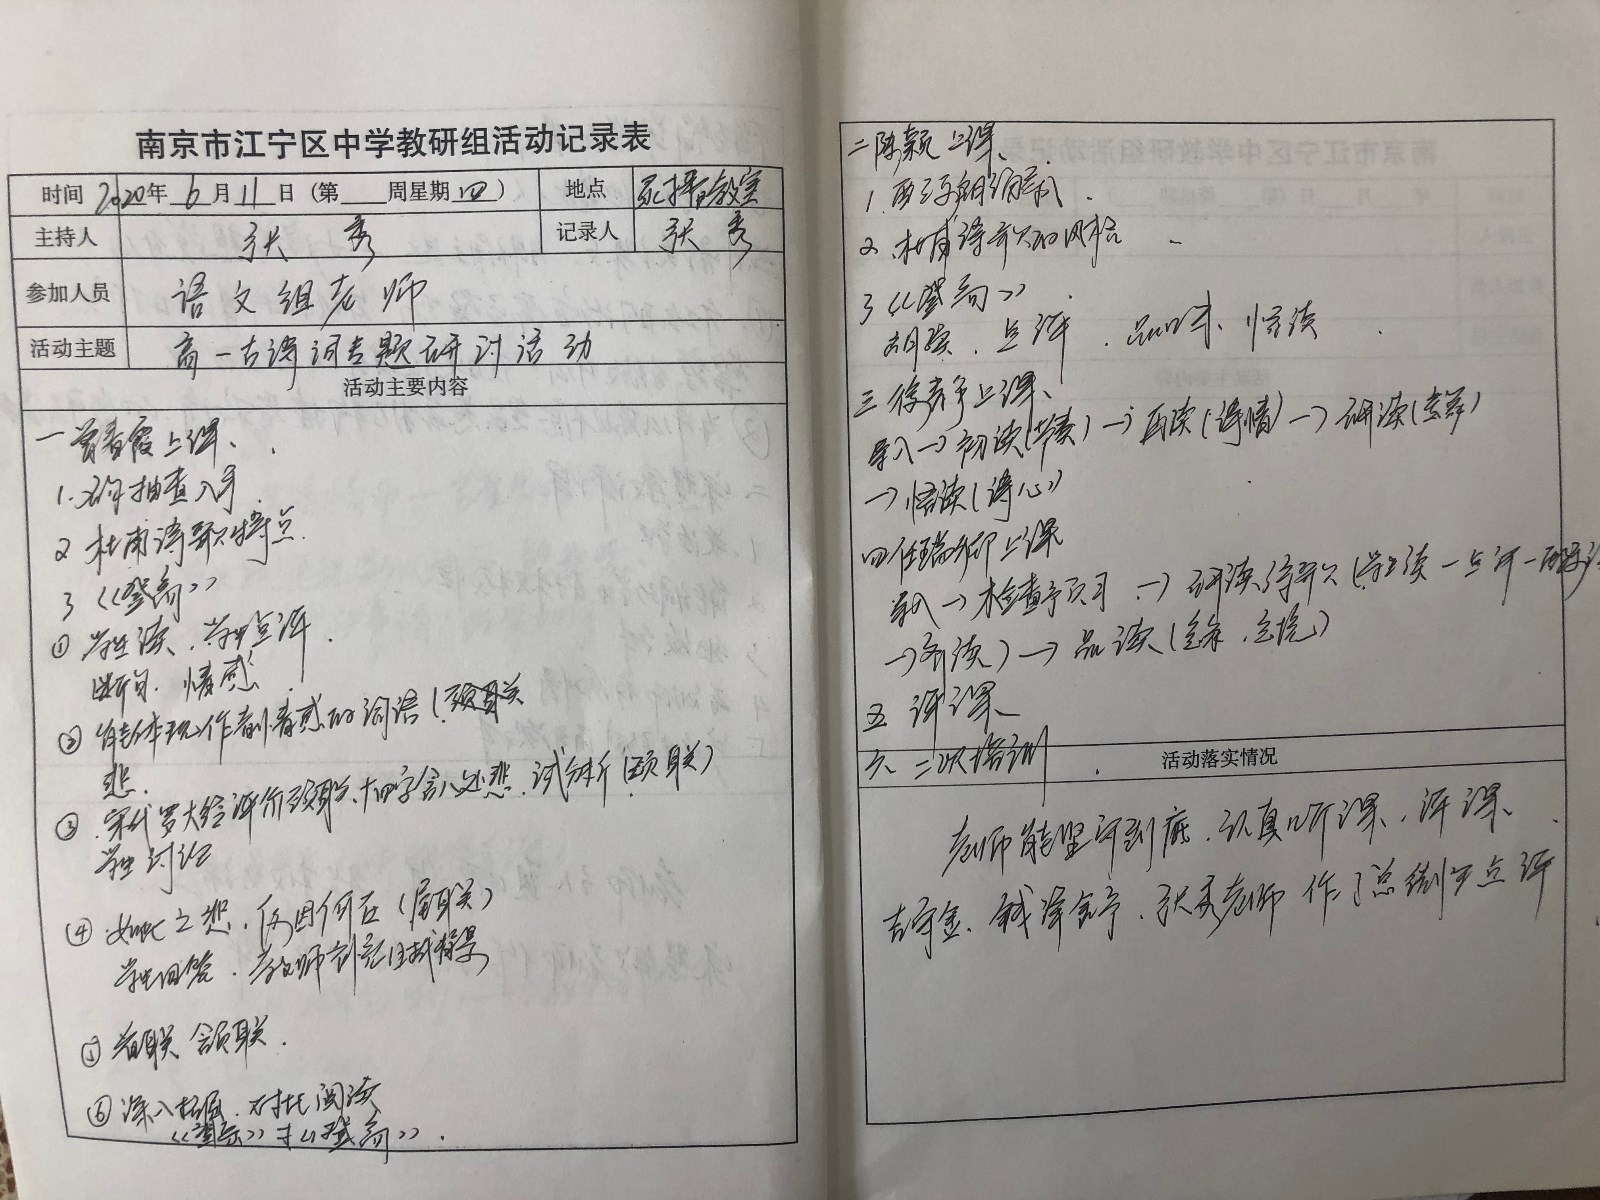 南京市江宁区中学教研组活动记录表
时间 2020年 6 月 11 日 (第 周星期 四 ) 地点 录播教室
主持人 张 秀 记录人 张 秀
参加人员 语文组老师
活动主题 高一古诗词专题研讨活动
活动主要内容
一 曾春霞上课、
1. 抽查入手
2 杜甫诗歌特点
3 《登高》
① 学生读、学生点评
断句、情感
② 能体现作者情感的词语(颈联
悲.
③ 宋代罗大经评价颈联、十四字含八处悲.试分析(颈联)
学生讨论
④ 如此之悲,原因何在(尾联)
学生回答、教师 背景
⑤ 首联 颔联.
⑥ 深入拓展、对比阅读
《登岳 》才《登高》.
二 陈颖上课、
1.
2 杜甫诗歌的风格
3 《登高》
朗读、点评、品味、悟读
三 徐 上课、
导入→初读(节奏)→再读(诗情)→研读(意象)
→悟读(诗心)
四 任 上课
导入→检查预习→研读诗歌(学生读一点评一
→齐读)→品读(意象、意境)
五 评课
六、二次培训
活动落实情况
老师能坚守到底、认真听课、评课、
吉守金、钱 、张秀老师作了总 点评